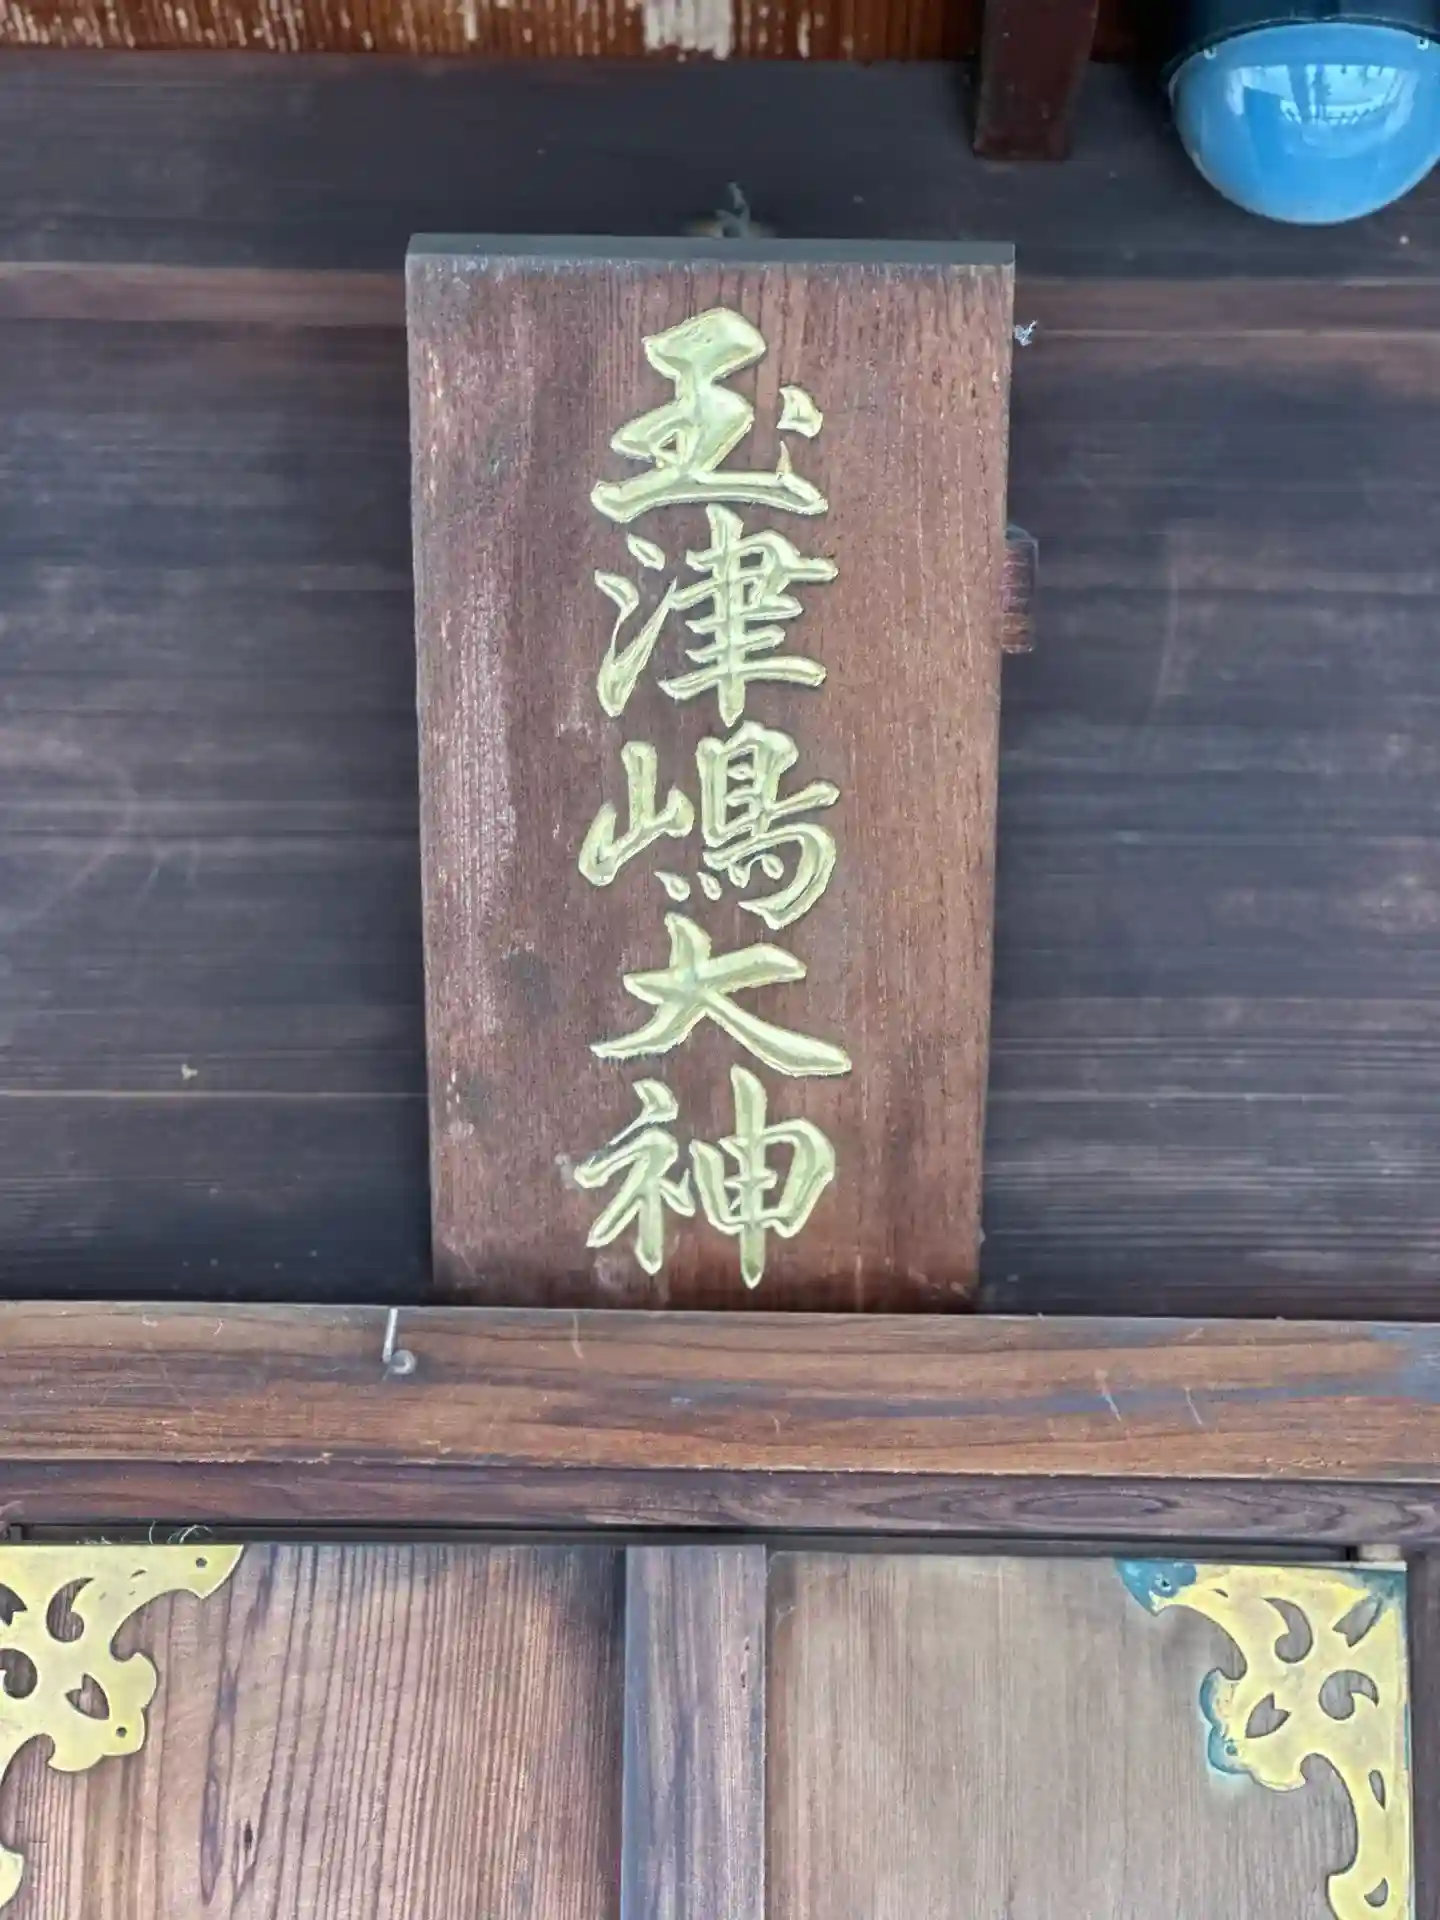 玉津嶋大神